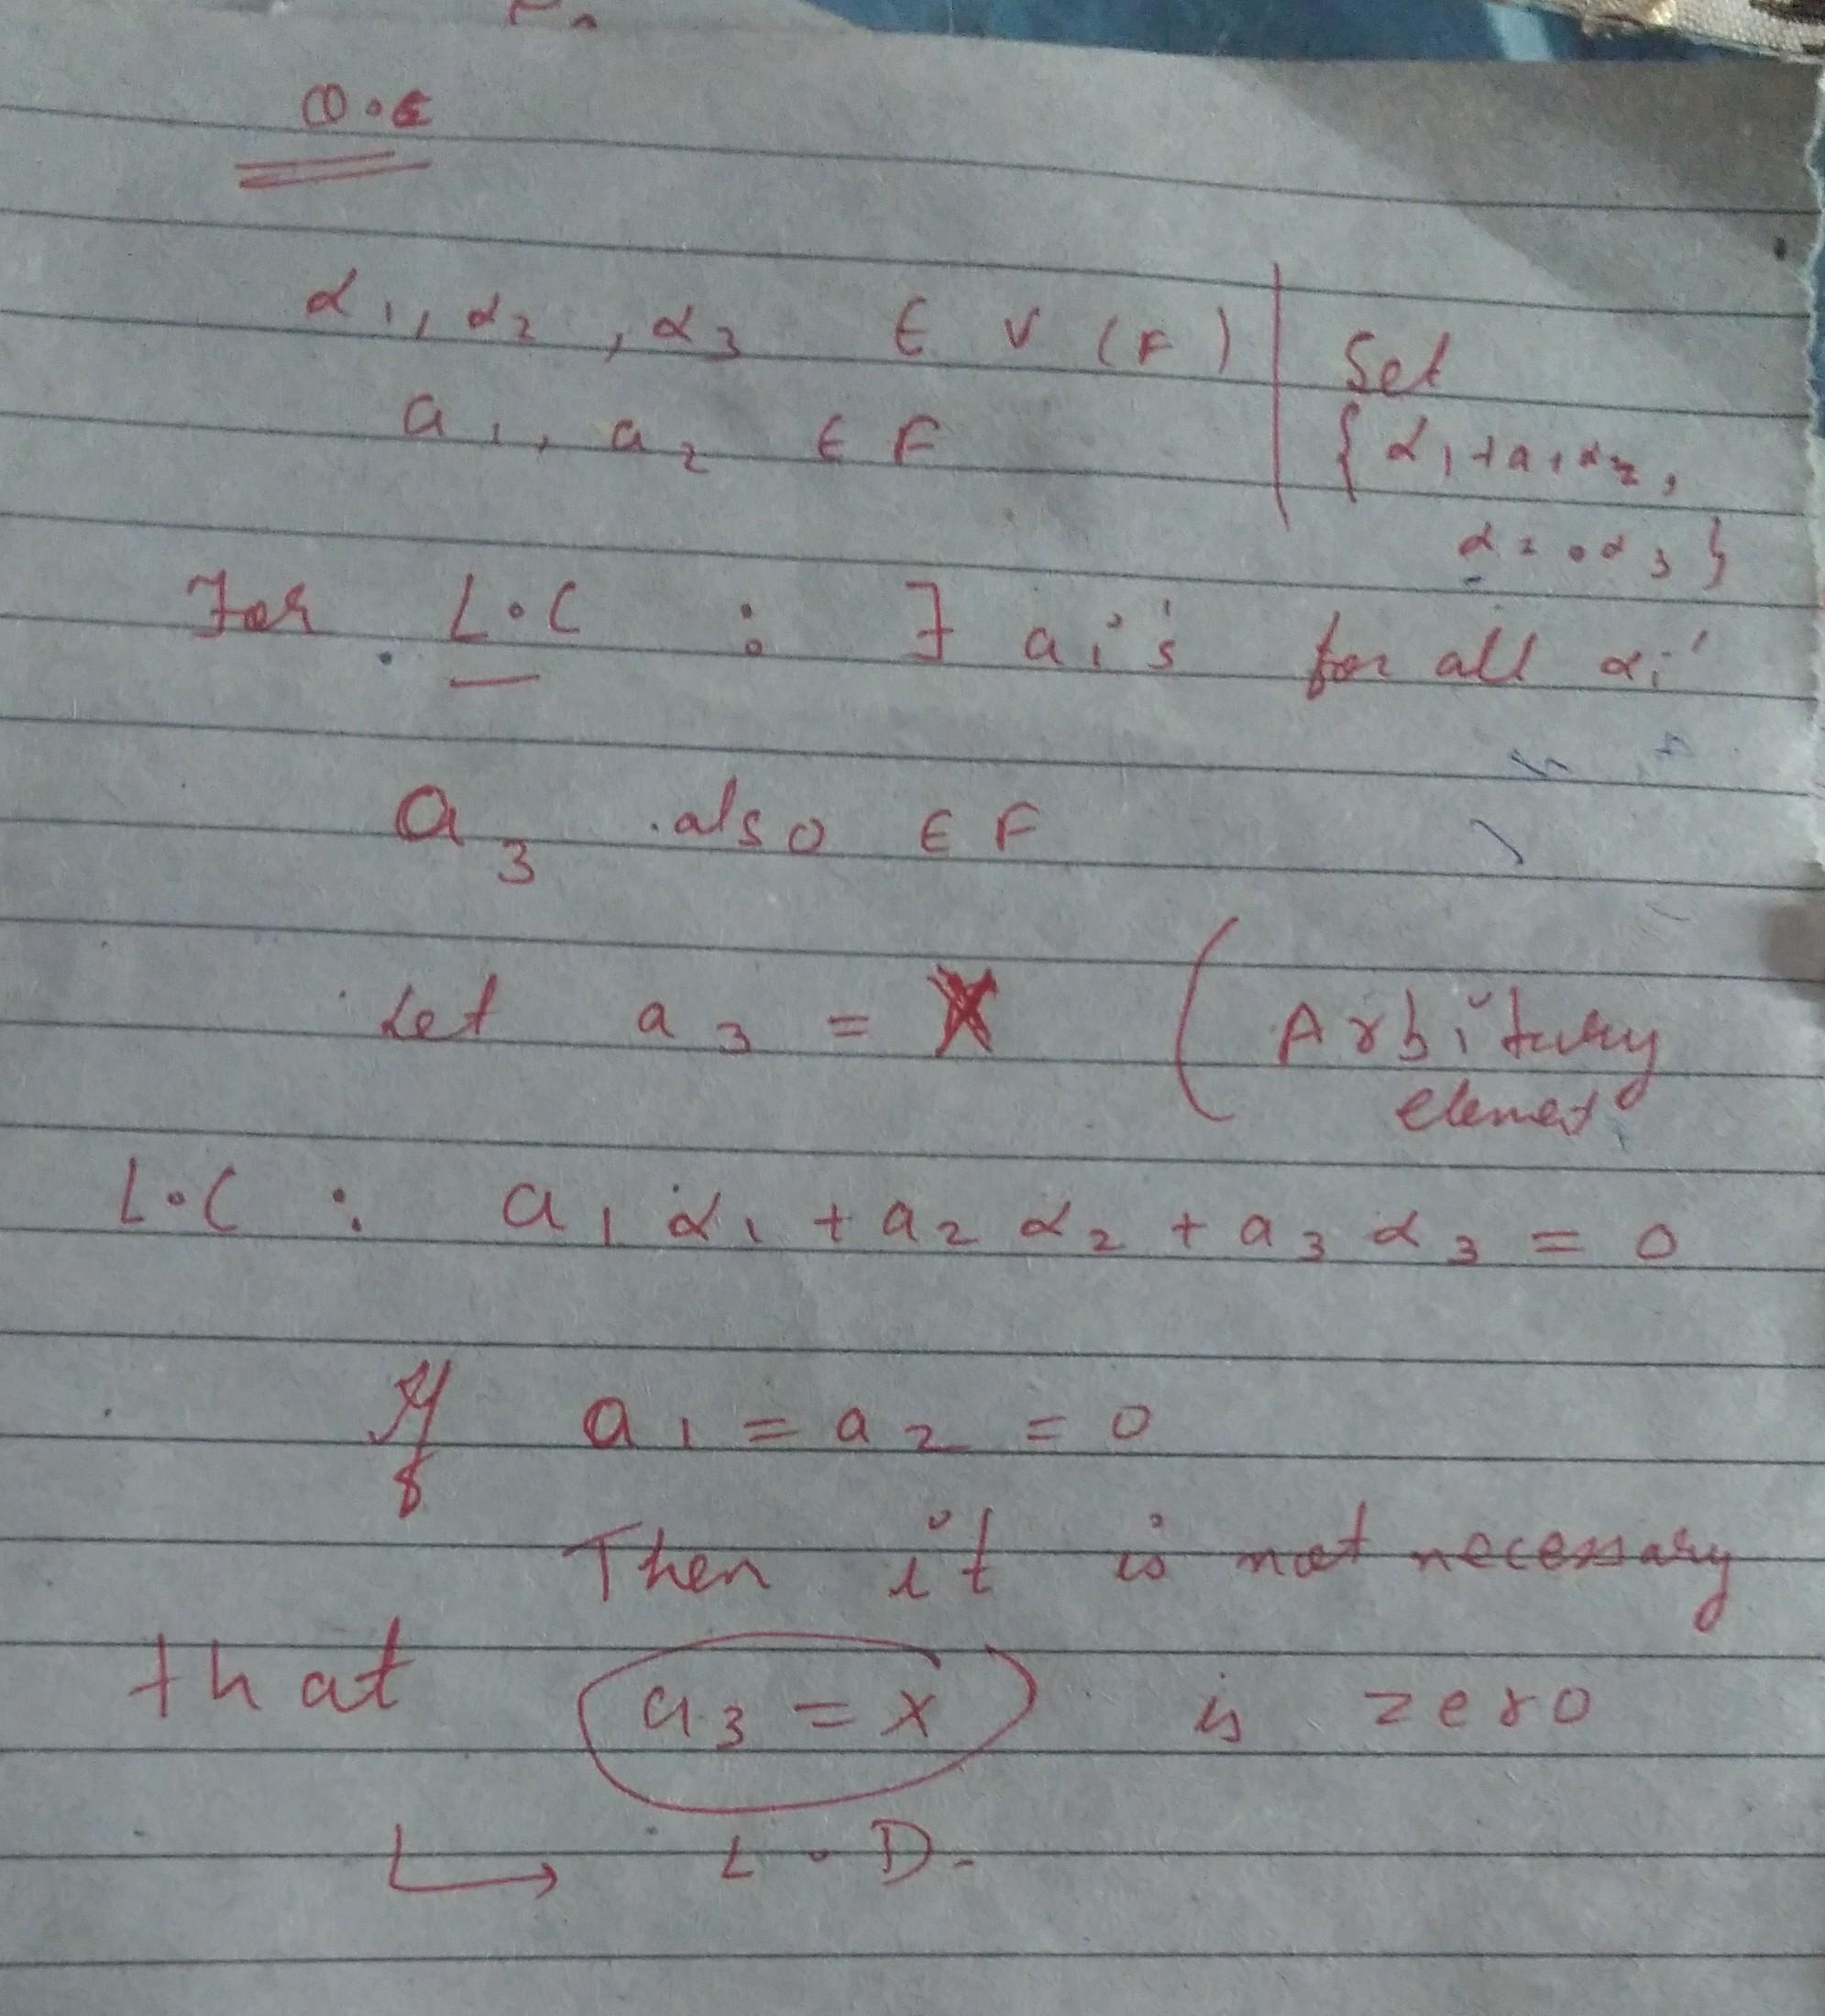 α1, α2, α3 ∈ V (F)
a1, a2 ∈ F
Set
{α1+a1α2,
α2, α3}
For L.C : ∃ ai's for all αi'
a3 also ∈ F
Let a3 = X (Arbitury
element
L.C : a1α1 + a2α2 + a3α3 = 0
If a1 = a2 = 0
Then it is not necessary
that a3 = x is zero
↳ L.D.